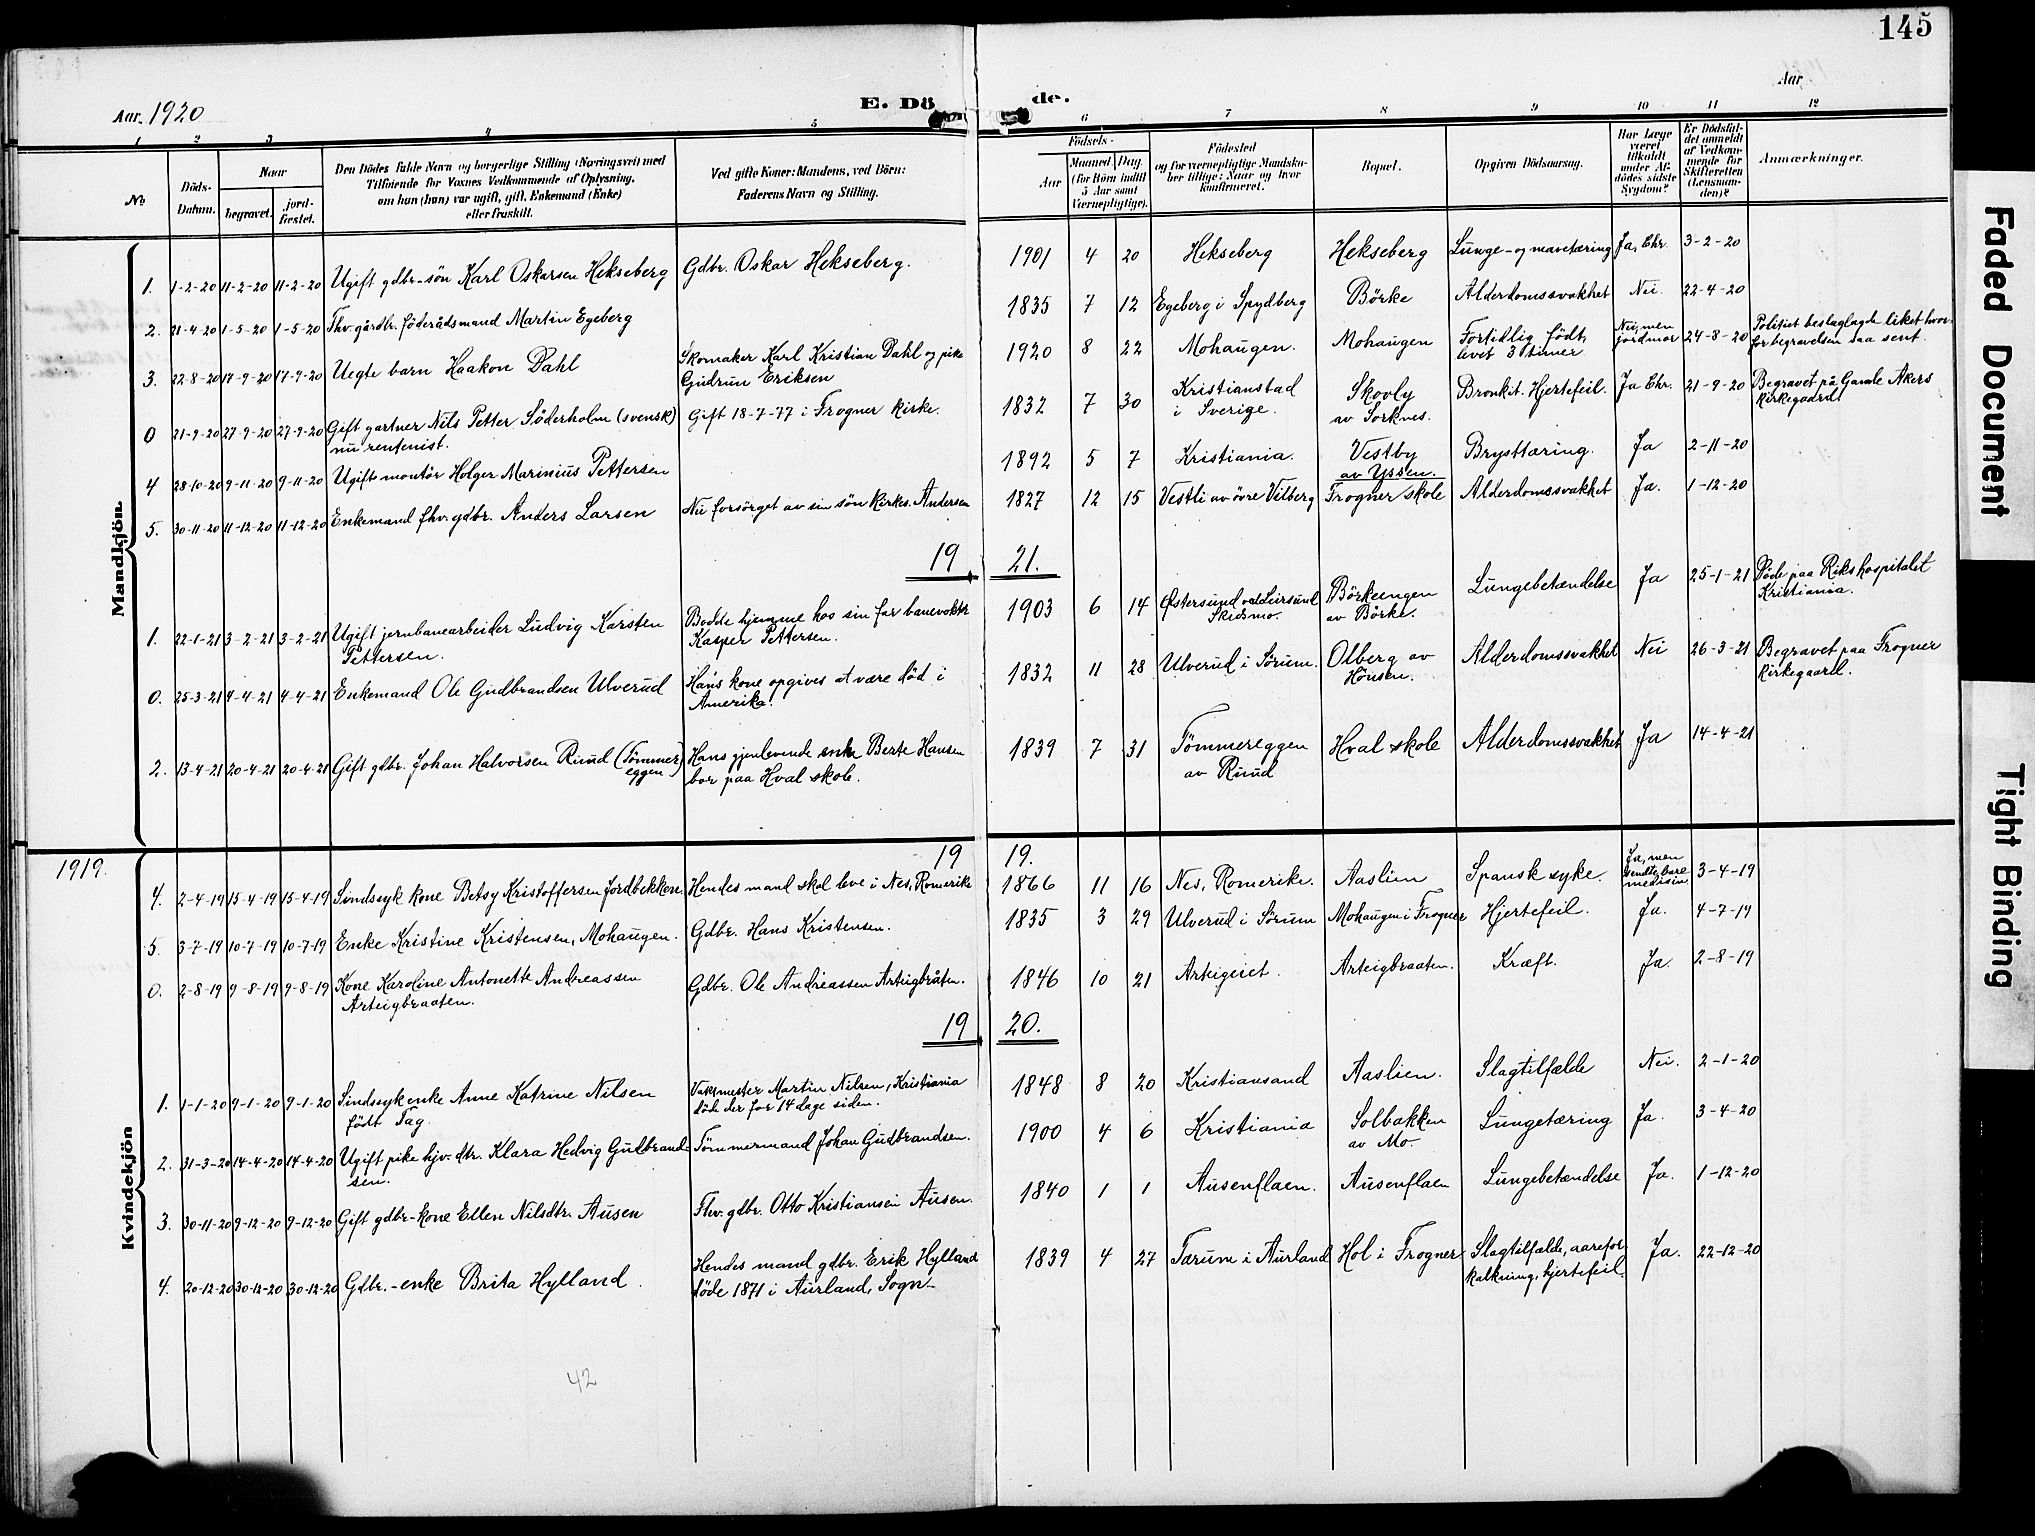 145
Aar 1920
E. Dö
de.
Aar
1 2 3 4 5 6 7 8 9 10 11 12
No
Döds-
Datum.
Naar
begravet.
jord-
fæstet.
Den Dödes fulde Navn og borgerlige Stilling (Næringsvei) med
Tilföiende for Voxnes Vedkommende af Oplysning,
om han (hun) var ugift, gift, Enkemand (Enke)
eller fraskilt.
Ved gifte Koner: Mandens, ved Börn:
Faderens Navn og Stilling.
Födsels-
Aar
Maaned
Dag.
(for Börn indtil
5 Aar samt
Værnepligtige).
Födested
og for værnepligtige Mandska-
ber tillige: Naar og hvor
konfirmeret.
Bopæl.
Opgiven Dödsaarsag.
Har Læge
været
tilkaldt
under Af-
dödes sidste
Sygdom?
Er Dödsfal-
det anmeldt
af Vedkom-
mende for
Skifteretten
(Lensman-
den)?
Anmærkninger.
Mandkjön.
1. 1-2-20 11-2-20 11-2-20 Ugift gdbr-sön Karl Oskarsen Hekseberg Gdbr. Oskar Hekseberg. 1901 4 20 Hekseberg Hekseberg Lunge- og mavetæring Ja, Chr. 3-2-20
2. 21-4-20 1-5-20 1-5-20 Fhv. gårdbr. föderådsmand Martin Egeberg 1835 7 12 Egeberg i Spydberg Börke Alderdomssvakhet Nei. 22-4-20
3. 22-8-20 17-9-20 17-9-20 Uegte barn Haakon Dahl Skomaker Karl Kristian Dahl og pike
Gudrun Eriksen 1920 8 22 Mohaugen. Mohaugen Fortidlig født,
levet 3 timer Nei, men
jordmor 24-8-20 Politiet beslaglagde liket hvor-
for begravelsen saa sent.
0 21-9-20 27-9-20 27-9-20 Gift gartner Nils Petter Söderholm (svensk)
nu rentenist. Gift 18-7-77 i Frogner kirke. 1832 7 30 Kristianstad
i Sverige. Skovly
av Sorknes. Bronkit. Hjertefeil. Ja Chr. 21-9-20 Begravet på Gamle Akers
Kirkegaard
4 28-10-20 9-11-20 9-11-20 Ugift montör Holger Marinius Pettersen 1892 5 7 Kristiania. Vestby
av Yssen. Brysttæring. Ja 2-11-20
5. 30-11-20 11-12-20 11-12-20 Enkemand fhv. gdbr. Anders Larsen Nu forsörget av sin sön kirkes. Andersen 1827 12 15 Vestli av övre Vilberg Frogner skole Alderdomssvakhet Ja. 1-12-20
19 21.
1. 22-1-21 3-2-21 3-2-21 Ugift jernbanearbeider Ludvig Karsten
Pettersen. Bodde hjemme hos sin far banevokter
Kasper Pettersen. 1903 6 14 Østersund ved Leirsund
Skedsmo. Börkeengen
av Börke. Lungebetændelse Ja 25-1-21 Døde paa Rikshospitalet
Kristiania.
0. 25-3-21 4-4-21 4-4-21 Enkemand Ole Gudbrandsen Ulverud Hans kone opgives at være död i
Amerika. 1832 11 28 Ulverud i Sørum. Olberg av
Hönsen. Alderdomssvakhet Nei 26-3-21 Begravet paa Frogner
kirkegaard.
2. 13-4-21 20-4-21 20-4-21 Gift gdbr. Johan Halvorsen Ruud (Tömmer-
eggen) Hans gjenlevende enke Berte Hansen
bor paa Hval skole. 1839 7 31 Tömmereggen
av Ruud Hval skole Alderdomssvakhet Ja 14-4-21
1919.
19 19.
Kvindekjön
4. 2-4-19 15-4-19 15-4-19 Sindssyk kone Betsy Kristoffersen Jordbekken Hendes mand skal leve i Nes, Romerike 1866 11 16 Nes, Romerike. Aaslien Spansk syke. Ja, men
sendte bare
medisin 3-4-19
5. 3-7-19 10-7-19 10-7-19 Enke Kristine Kristensen, Mohaugen. Gdbr. Hans Kristensen. 1835 3 29 Ulverud i Sørum Mohaugen i Frogner Hjertefeil. Ja. 4-7-19
0. 2-8-19 9-8-19 9-8-19 Kone Karoline Antonette Andreassen
Arteigbraaten. Gdbr. Ole Andreassen Arteigbråten. 1846 10 21 Arteigeiet. Arteigbraaten. Kræft. Ja. 2-8-19
19 20.
1. 1-1-20 9-1-20 9-1-20 Sindssyk enke Anne Katrine Nilsen
födt Tag Vaktmester Martin Nilsen, Kristiania
död der for 14 dage siden. 1848 8 20 Kristiansand Aaslien. Slagtilfælde Nei. 2-1-20
2. 31-3-20 14-4-20 14-4-20 Ugift pike hjv. dtr. Klara Hedvig Gulbrand-
sen. Tömmermand Johan Gudbrandsen. 1900 4 6 Kristiania Solbakken
av Mo. Lungetæring Ja. 3-4-20
3. 30-11-20 9-12-20 9-12-20 Gift gdbr-kone Ellen Nilsdtr. Ausen Fhv. gdbr. Otto Kristiansen Ausen. 1840 1 1 Ausenflaen. Ausenflaen Lungebetændelse Ja. 1-12-20
4. 20-12-20 30-12-20 30-12-20 Gdbr.-enke Brita Hylland. Hendes mand gdbr. Erik Hylland
døde 1871 i Aurland, Sogn- 1839 4 27 Tærum i Aurland Hol i Frogner Slagtilfælde, aarefor-
kalkning, hjertefeil. Ja. 22-12-20
42
Faded Document
Tight Binding